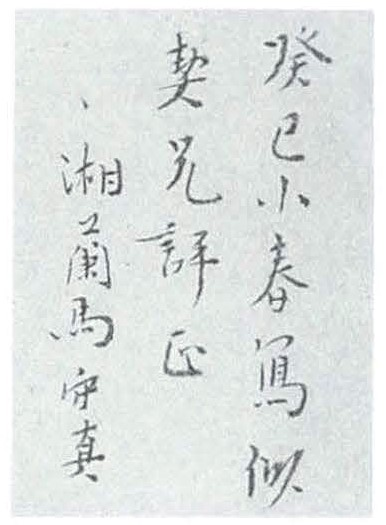 癸巳小春寫似
契兄評正
湘蘭馬守真